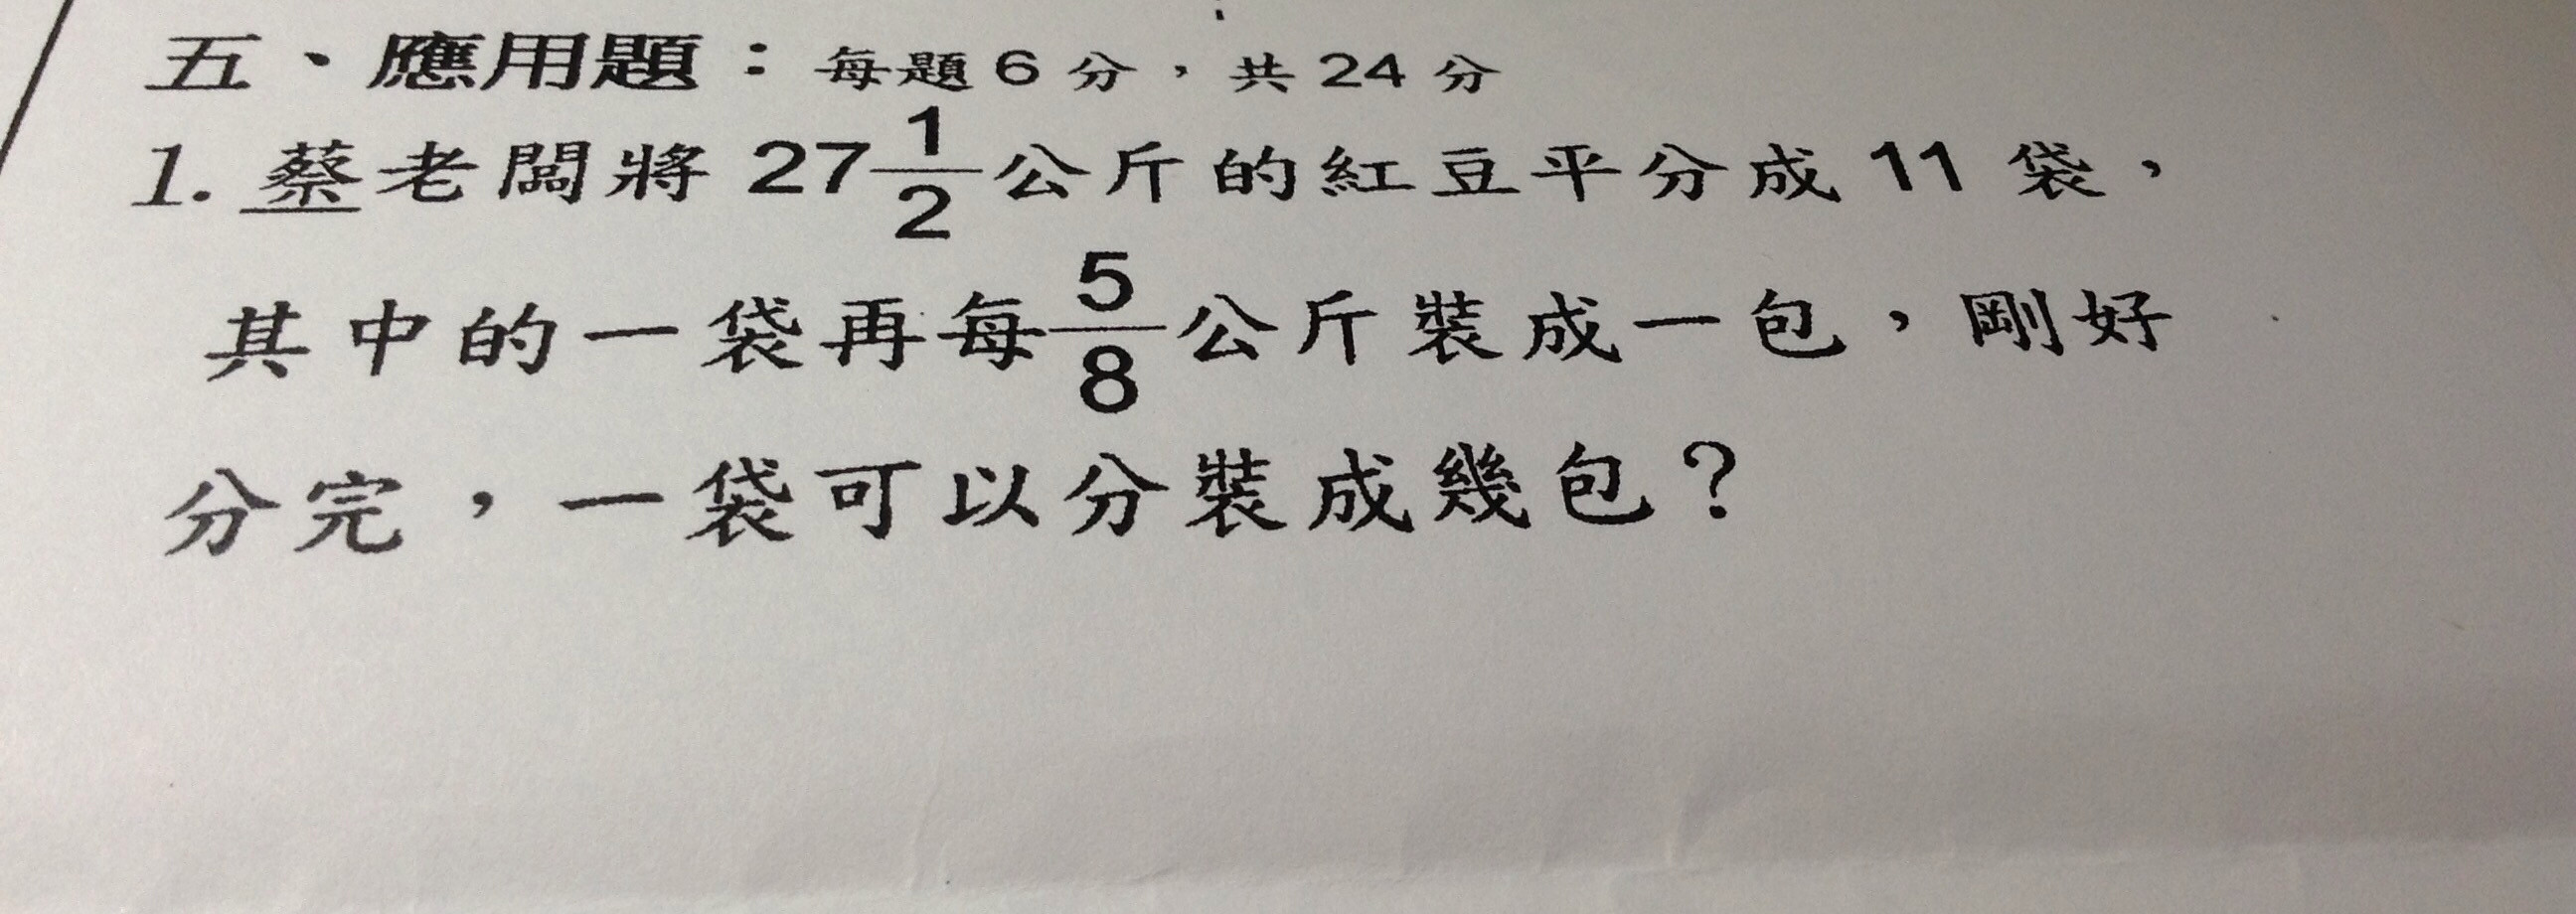 五、應用題：每題 6 分，共 24 分
1. 蔡老闆將 27 1/2 公斤的紅豆平分成 11 袋，
其中的一袋再每 5/8 公斤裝成一包，剛好
分完，一袋可以分裝成幾包？